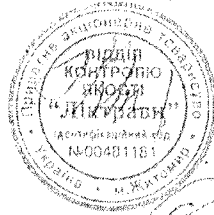 Приватне акціонерне товариство
ВІДДІЛ
КОНТРОЛЮ
ЯКОСТІ
"Ліктрави"
Ідентифікаційний код
№00481181
Україна * м.Житомир